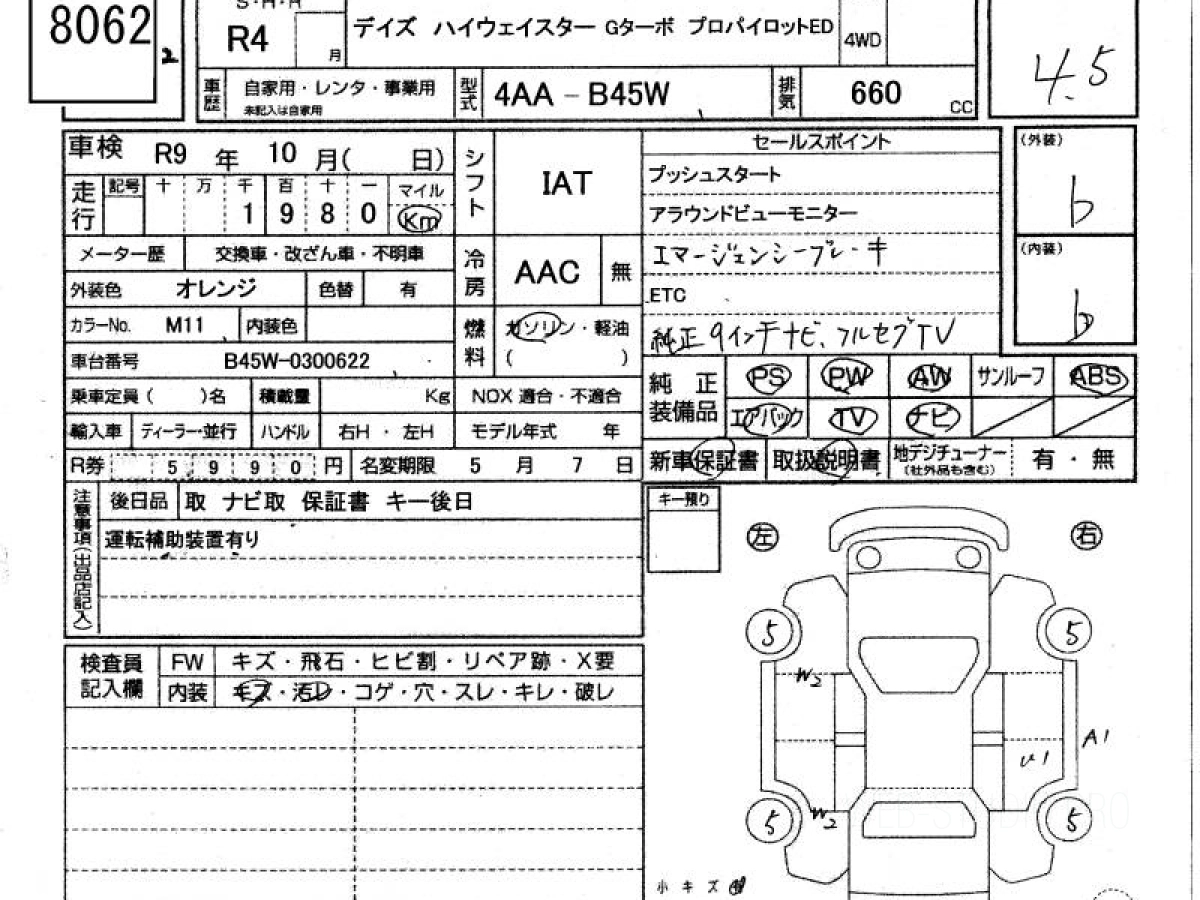 8062
2
S・H・R
R4 月
デイズ ハイウェイスター Gターボ プロパイロットED
4WD
4.5
車歴 自家用・レンタ・事業用
未記入は自家用
型式 4AA－B45W
排気 660 CC
車検 R9 年 10 月( 日)
シフト IAT
セールスポイント
プッシュスタート
アラウンドビューモニター
エマージェンシーブレーキ
ETC
純正9インチナビ、フルセグTV
(外装)
b
(内装)
b
走行 記号 十 万 千 百 十 一 マイル
1 9 8 0 Km
メーター歴 交換車・改ざん車・不明車
冷房 AAC 無
外装色 オレンジ 色替 有
カラーNo. M11 内装色
燃料 ガソリン・軽油
( )
車台番号 B45W-0300622
乗車定員( )名 積載量 Kg NOX 適合・不適合
輸入車 ディーラー・並行 ハンドル 右H ・ 左H モデル年式 年
R券 5 9 9 0 円 名変期限 5 月 7 日
純正装備品 PS PW AW サンルーフ ABS
エアバック TV ナビ
新車保証書 取扱説明書 地デジチューナー
(社外品も含む) 有 ・ 無
注意事項(出品店記入)
後日品 取 ナビ取 保証書 キー後日
運転補助装置有り
キー預り
左 右
検査員記入欄 FW キズ・飛石・ヒビ割・リペア跡・X要
内装 キズ・汚レ・コゲ・穴・スレ・キレ・破レ
5 5
W2
A1
U1
W2
5 5
小キズ有